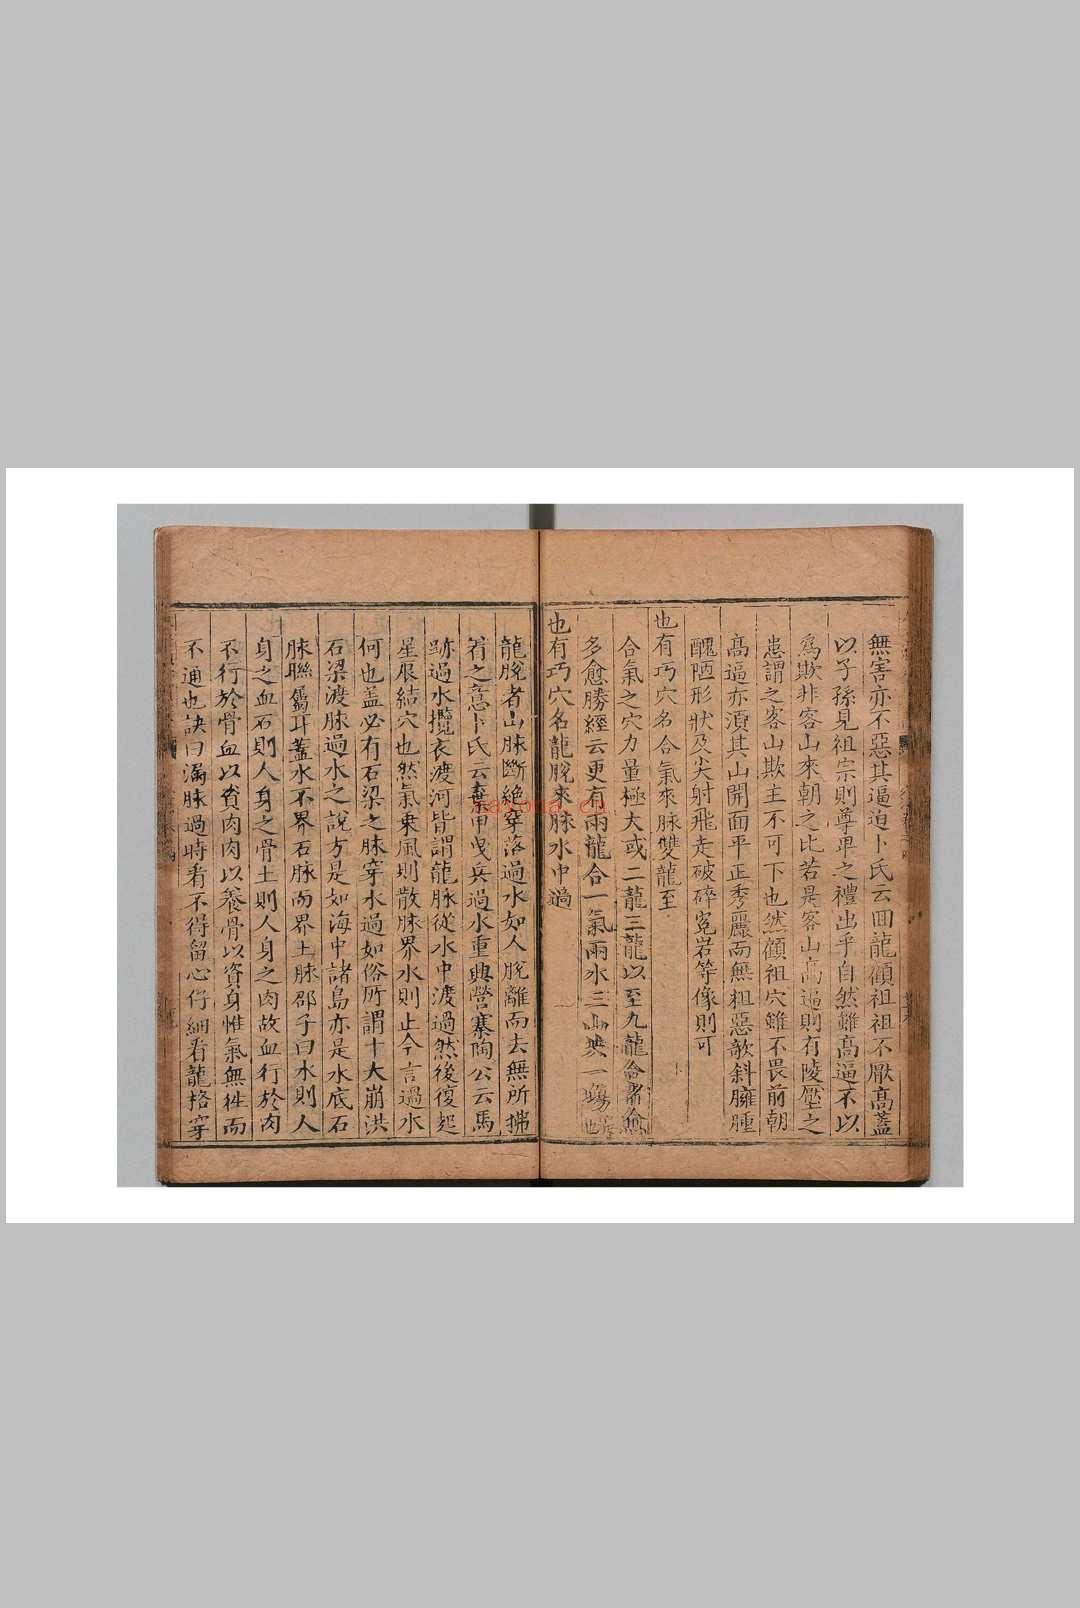 無害亦不惡其逼迫卜氏云囬龍顧祖祖不厭高蓋
以子孫見祖宗則尊卑之禮出乎自然雖高逼不以
爲欺非客山來朝之比若是客山高逼則有陵壓之
患謂之客山欺主不可下也然顧祖穴雖不畏前朝
高逼亦湏其山開面平正秀麗而無粗惡欹斜臃腫
醜陋形狀及尖射飛走破碎寃岩等像則可
也有巧穴名合氣來脉雙龍至
合氣之穴力量極大或二龍三龍以至九龍合者愈
多愈勝經云更有兩龍合一氣兩水三山共一塲
也有巧穴名龍脫來脉水中過
龍脫者山脉斷絶穿落過水如人脫離而去無所拂
着之意卜氏云棄甲曳兵過水重興營寨陶公云馬
跡過水攬衣渡河皆謂龍脉從水中渡過然後復起
星辰結穴也然氣乗風則散脉界水則止今言過水
何也盖必有石梁之脉穿水過如俗所謂十大崩洪
石梁渡脉過水之說方是如海中諸島亦是水底石
脉聮屬耳蓋水不界石脉而界土脉邵子曰水則人
身之血石則人身之骨土則人身之肉故血行於肉
不行於骨血以資肉肉以養骨以資身惟氣無徃而
不通也訣曰漏脉過時看不得留心仔細看龍格穿
nayona.cn